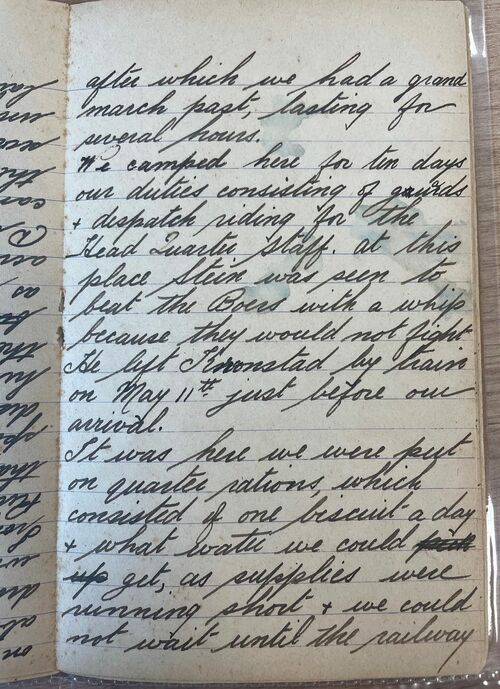 after which we had a grand
march past, lasting for
several hours.
We camped here for ten days
our duties consisting of guards
+ despatch riding for the
Head Quarter Staff. at this
place Stein was seen to
beat the Boers with a whip
because they would not fight
He left Kronstad by train
on May 11th just before our
arrival.
It was here we were put
on quarter rations, which
consisted of one biscuit a day
+ what water we could pick
up get, as supplies were
running short + we could
not wait until the railway